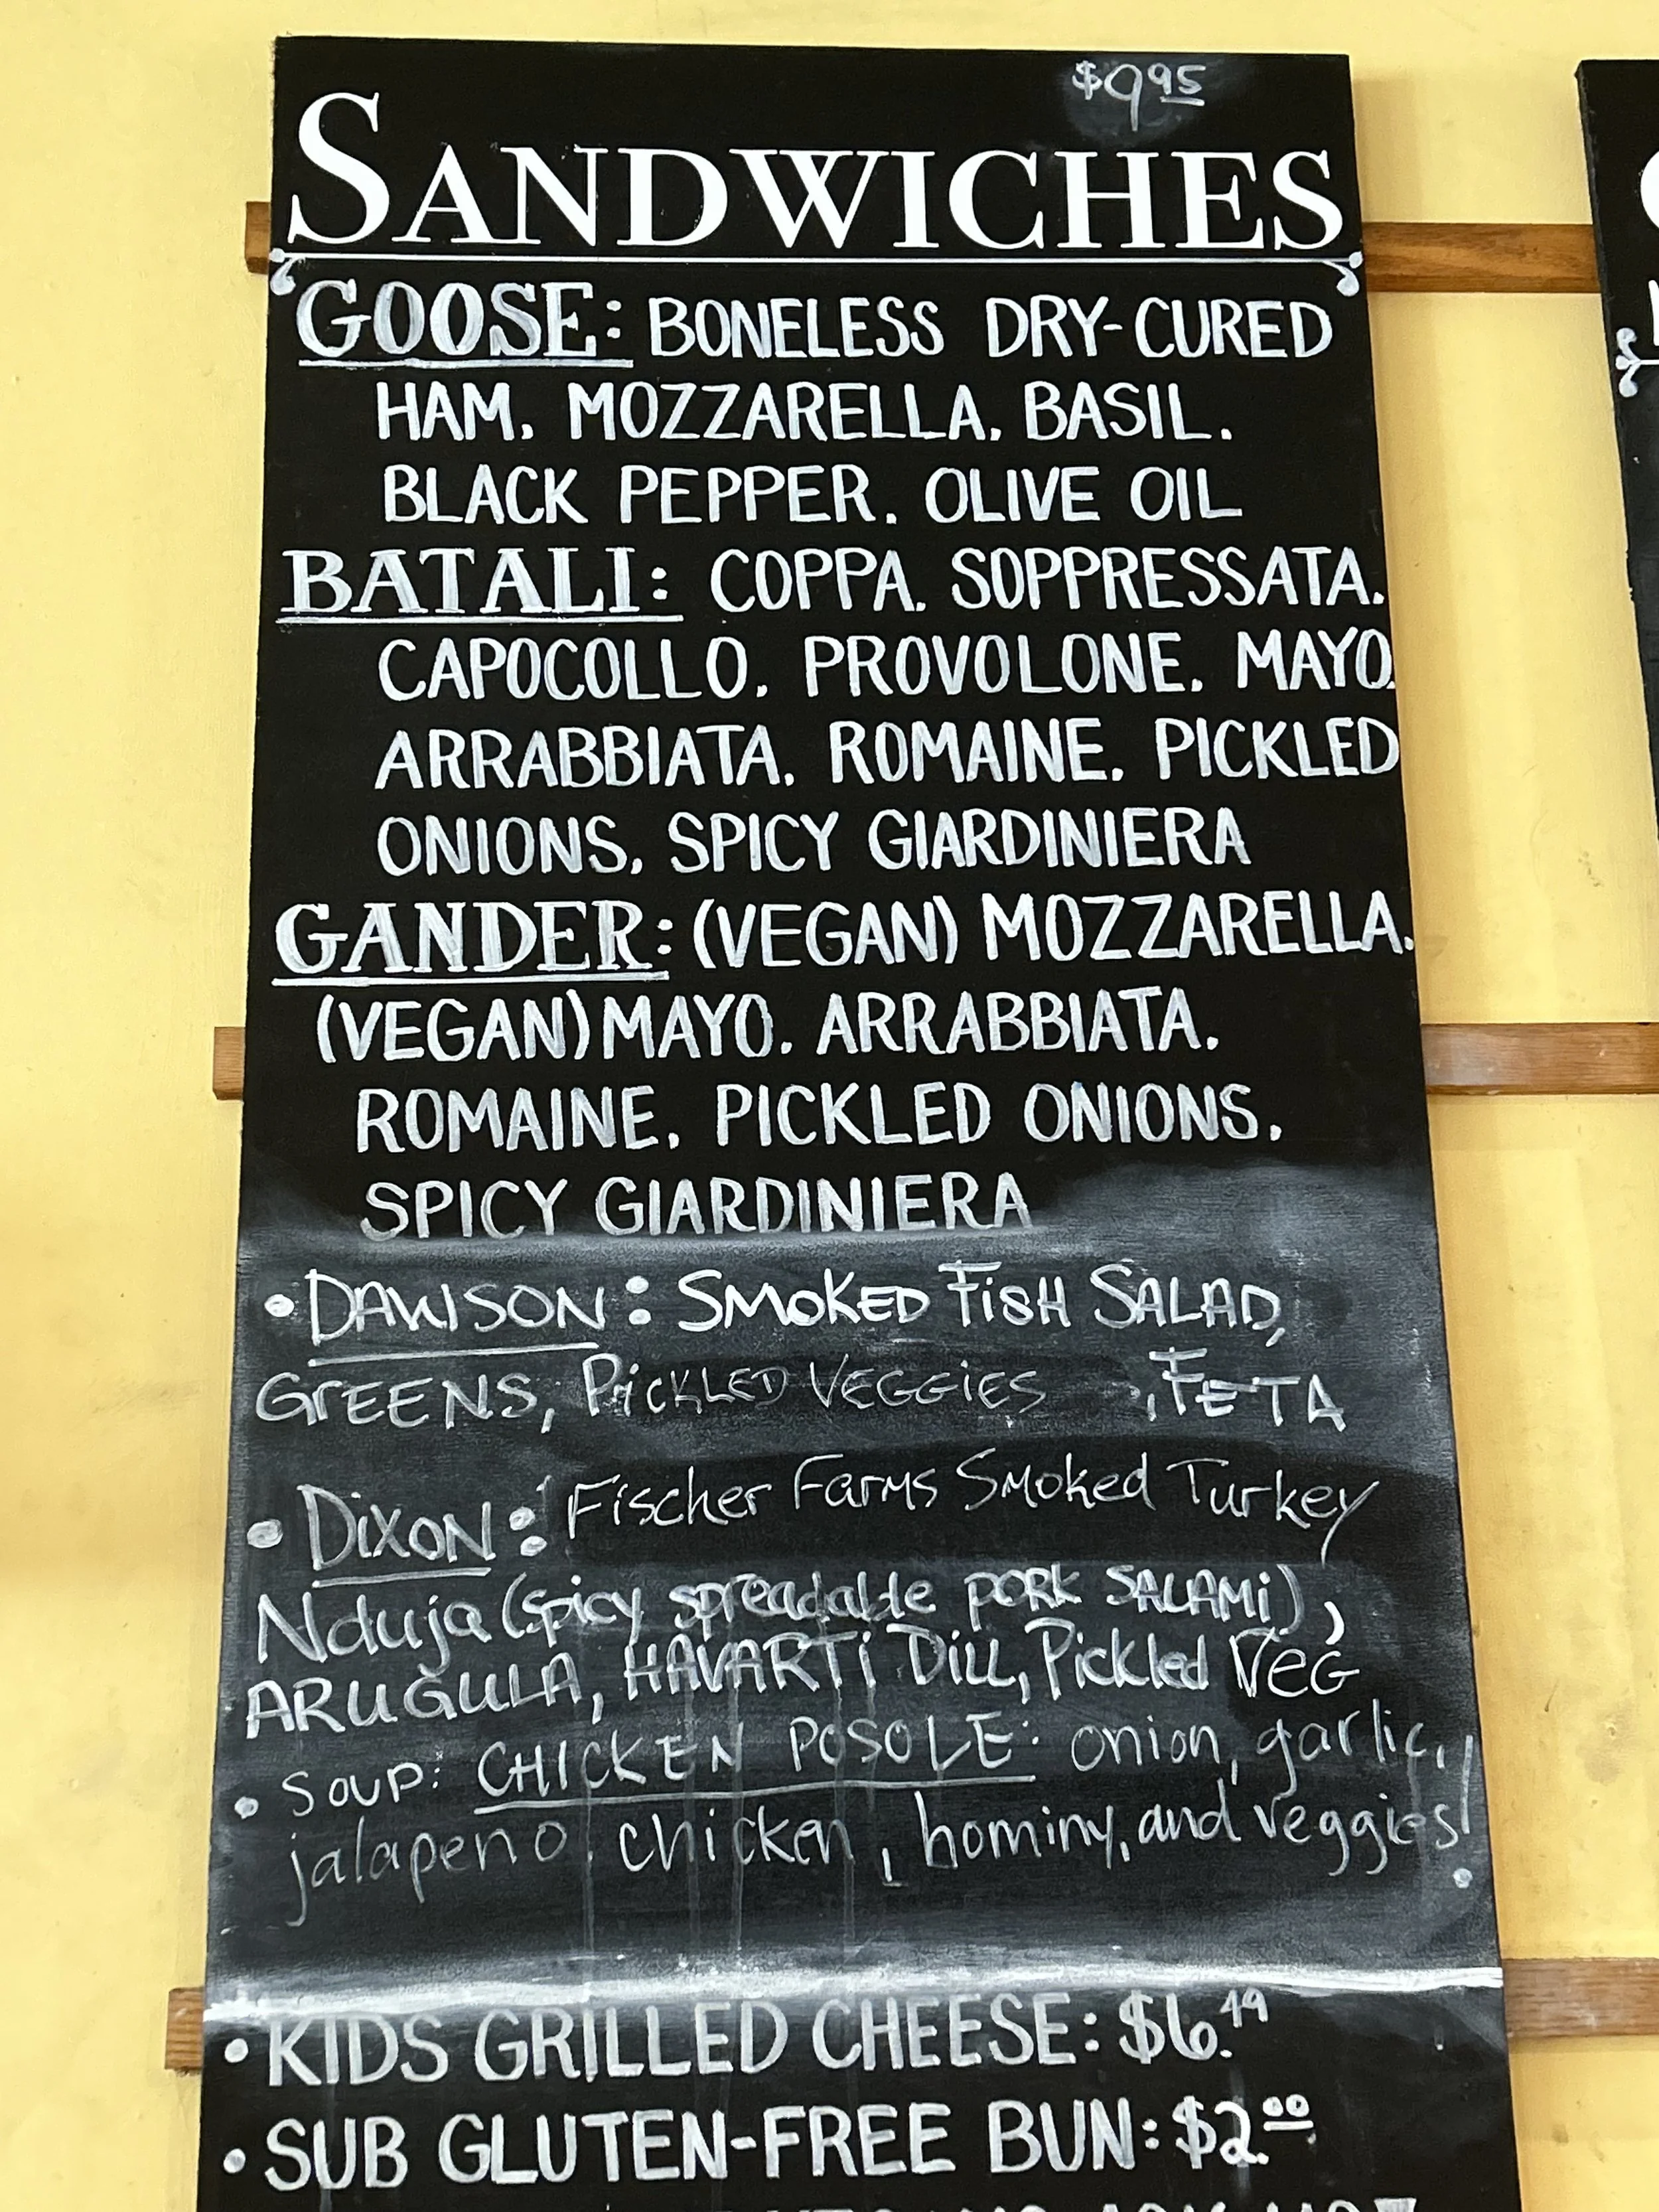 $9.95
SANDWICHES
GOOSE: BONELESS DRY-CURED
HAM, MOZZARELLA, BASIL,
BLACK PEPPER, OLIVE OIL
BATALI: COPPA, SOPPRESSATA,
CAPOCOLLO, PROVOLONE, MAYO,
ARRABBIATA, ROMAINE, PICKLED
ONIONS, SPICY GIARDINIERA
GANDER: (VEGAN) MOZZARELLA,
(VEGAN) MAYO, ARRABBIATA,
ROMAINE, PICKLED ONIONS,
SPICY GIARDINIERA
• DAWSON: SMOKED FISH SALAD,
GREENS, PICKLED VEGGIES, FETA
• DIXON: Fischer Farms Smoked Turkey
Nduja (spicy spreadable pork SALAMi),
ARUGULA, HAVARTi Dill, Pickled VEG
• SOUP: CHICKEN POSOLE: onion, garlic,
jalapeno, chicken, hominy, and veggies!
• KIDS GRILLED CHEESE: $6.49
• SUB GLUTEN-FREE BUN: $2.00